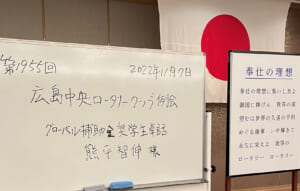 第1955回
2022年11月7日
広島中央ロータリークラブ例会
グローバル補助金奨学生卓話
熊平智伸 様
奉仕の理想
奉仕の理想に集いし友よ
御国に捧げん 我等の業
望むは世界の久遠の平和
めぐる歯車 いや輝きて
永久に栄えよ 我等の
ロータリー ロータリー